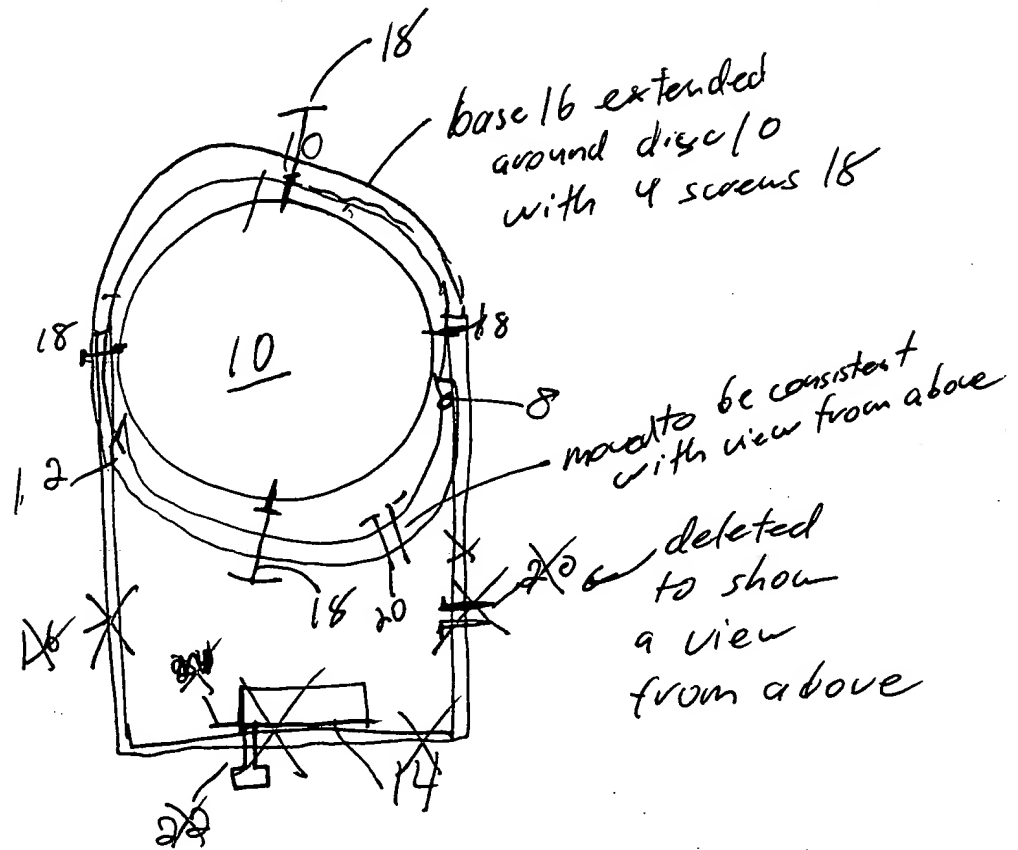 18
base 16 extended
around disc 10
with 4 screws 18
10
18
18
10
8
moved to be consistent
with view from above
12
20
deleted
to show
a view
from above
18
20
16
14
22